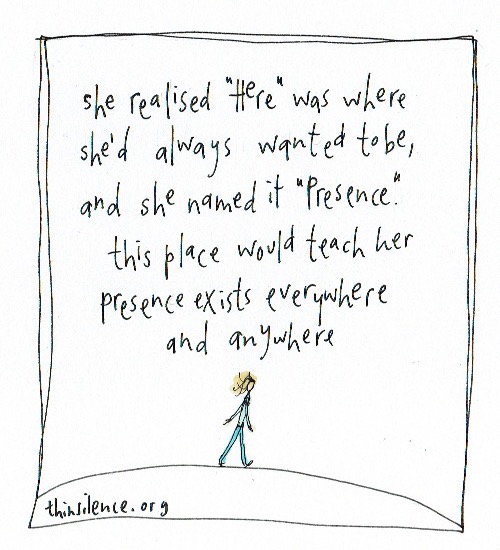 she realised "Here" was where
she'd always wanted to be,
and she named it "Presence."
this place would teach her
presence exists everywhere
and anywhere
thinsilence.org